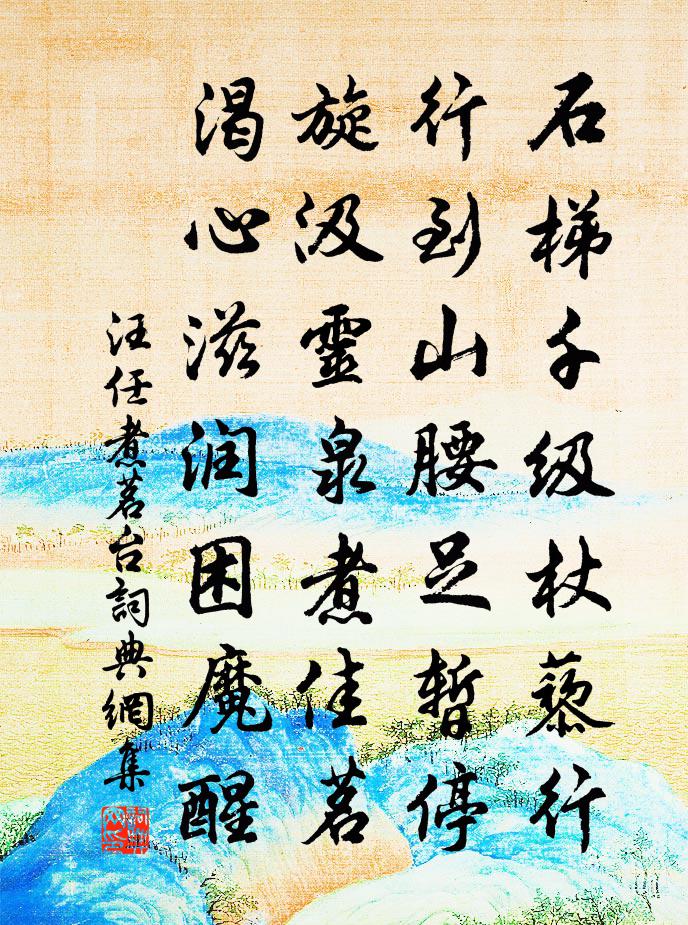 石梯千级杖藜行
行到山腰足暫停
旋汲靈泉煮佳茗
渴心滋润困魔醒
汪任煮茗台詞典網集